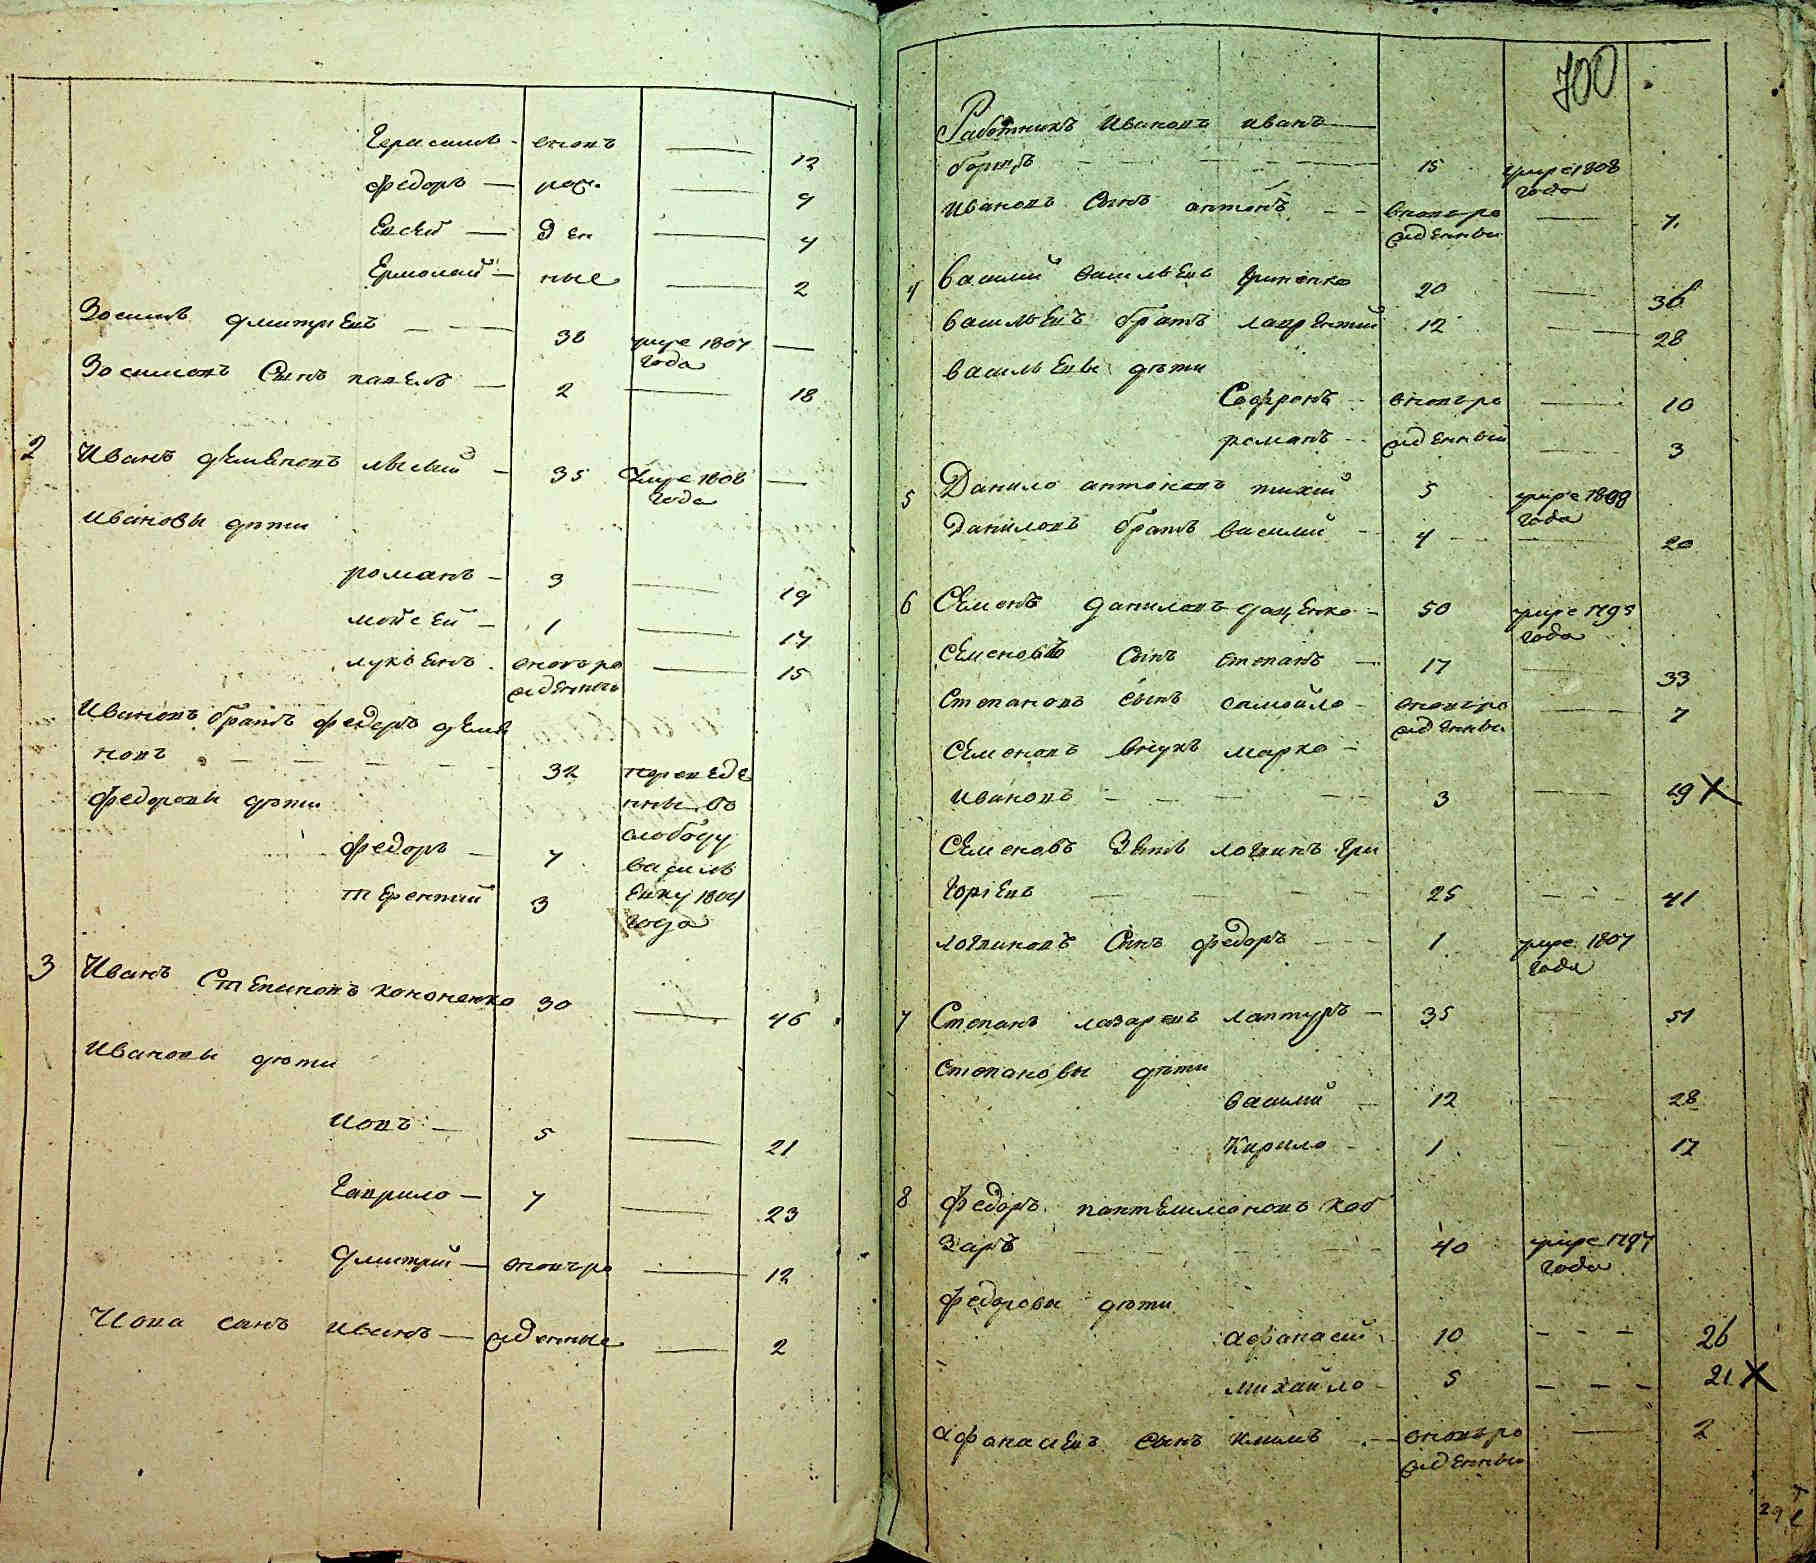 Герасимъ - вновъ — 12
Федоръ — рож. — 9
Евсей — ден — 4
Ермолай — ные — 2
Зосимъ Дмитриевъ — — 38 умре 1807 года —
Зосимовъ сынъ Павелъ — 2 — 18
2 Иванъ Деменовъ Лысый — 35 умре 1808 года —
Ивановы дѣти
Романъ — 3 — 19
Мойсей — 1 — 17
Лукьянъ - вновъро жденны — 15
Ивановъ братъ Федоръ Деме
новъ — — — — 32 переведе
Федоровы дѣти нны во
слободу
Федоръ — 7 Василь
Терентий 3 евку 1804
года
3 Иванъ Степановъ Кононенко 30 — 46
Ивановы дѣти
Иовъ — 5 — 21
Гаврило — 7 — 23
Дмитрий — вновъро — 12
Иова сынъ Иванъ — жденные — 2
700
Работникъ Ивановъ Иванъ —
— — — — 15 умре 1808 года
Ивановъ сынъ Антонъ — — вновъро жденны — 7
4 Василий Васильевъ Гриненко 20 — 36
Васильевъ братъ Лаврентий 12 — 28
Васильевы дѣти
Софронъ — вновъро — 10
Романъ — жденный — 3
5 Данило Антоновъ Тихий 5 умре 1808 года
Даниловъ братъ Василий — 4 — 20
6 Семенъ Даниловъ Даценко — 50 умре 1795 года
Семеновъ сынъ Степанъ — 17 — 33
Степановъ сынъ Самойло — вновъро жденны — 7
Семеновъ внукъ Марко —
Ивановъ — — — — 3 — 19 X
Семеновъ зять Логвинъ Гри
горіевъ — — — — 25 — — — 41
Логвиновъ сынъ Федоръ — — 1 умре 1807 года
7 Степанъ Лазаревъ Лаптуръ — 35 — 51
Степановы дѣти
Василий — 12 — 28
Кирило — 1 — 17
8 Федоръ Пантелимоновъ Коб
заръ — — — — 40 умре 1797 года
Федоровы дѣти
Афанасий - 10 — — — 26
Михайло — 5 — — — 21 X
Афанасиевъ сынъ Климъ — вновъро жденны — 2